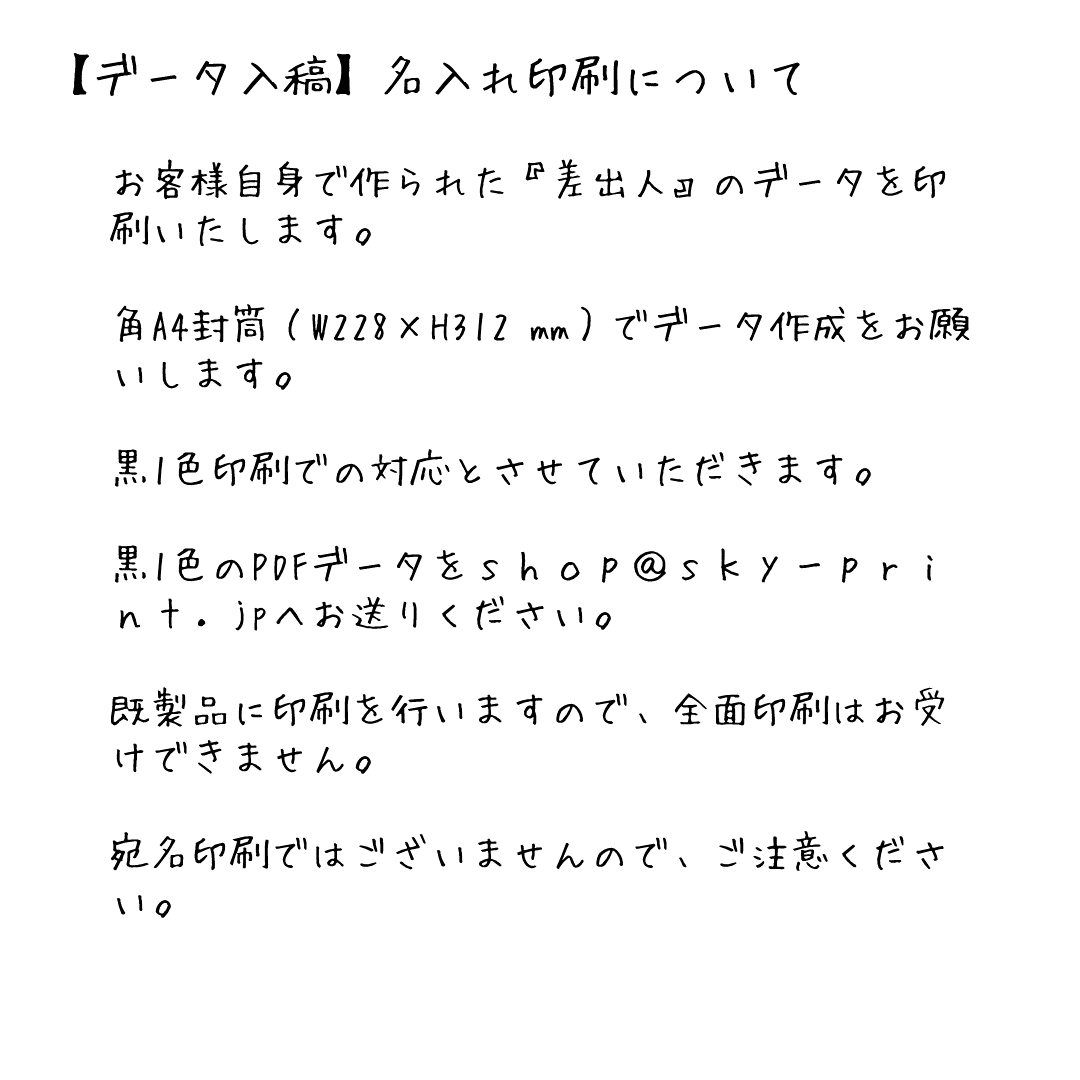 【データ入稿】名入れ印刷について
お客様自身で作られた『差出人』のデータを印
刷いたします。
角A4封筒（W228×H312 mm）でデータ作成をお願
いします。
黒1色印刷での対応とさせていただきます。
黒1色のPDFデータをｓｈｏｐ＠ｓｋｙ－ｐｒｉ
ｎｔ．jpへお送りください。
既製品に印刷を行いますので、全面印刷はお受
けできません。
宛名印刷ではございませんので、ご注意くださ
い。